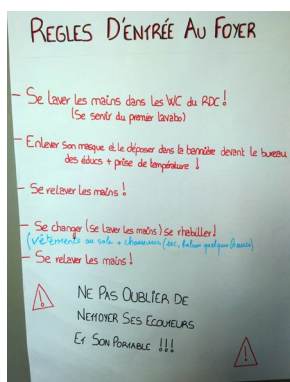 REGLES D'ENTRÉE AU FOYER
- Se laver les mains dans les WC du RDC !
(Se servir du premier lavabo)
- Enlever son masque et le déposer dans la bannière devant le bureau
des éducs + prise de température !
- Se relaver les mains !
- Se changer (se laver les mains) se rhabiller !
(vêtements au sale + chaussures (sac, balcon quelques heures)
- Se relaver les mains !
NE PAS OUBLIER DE
NETTOYER SES ECOUTEURS
ET SON PORTABLE !!!